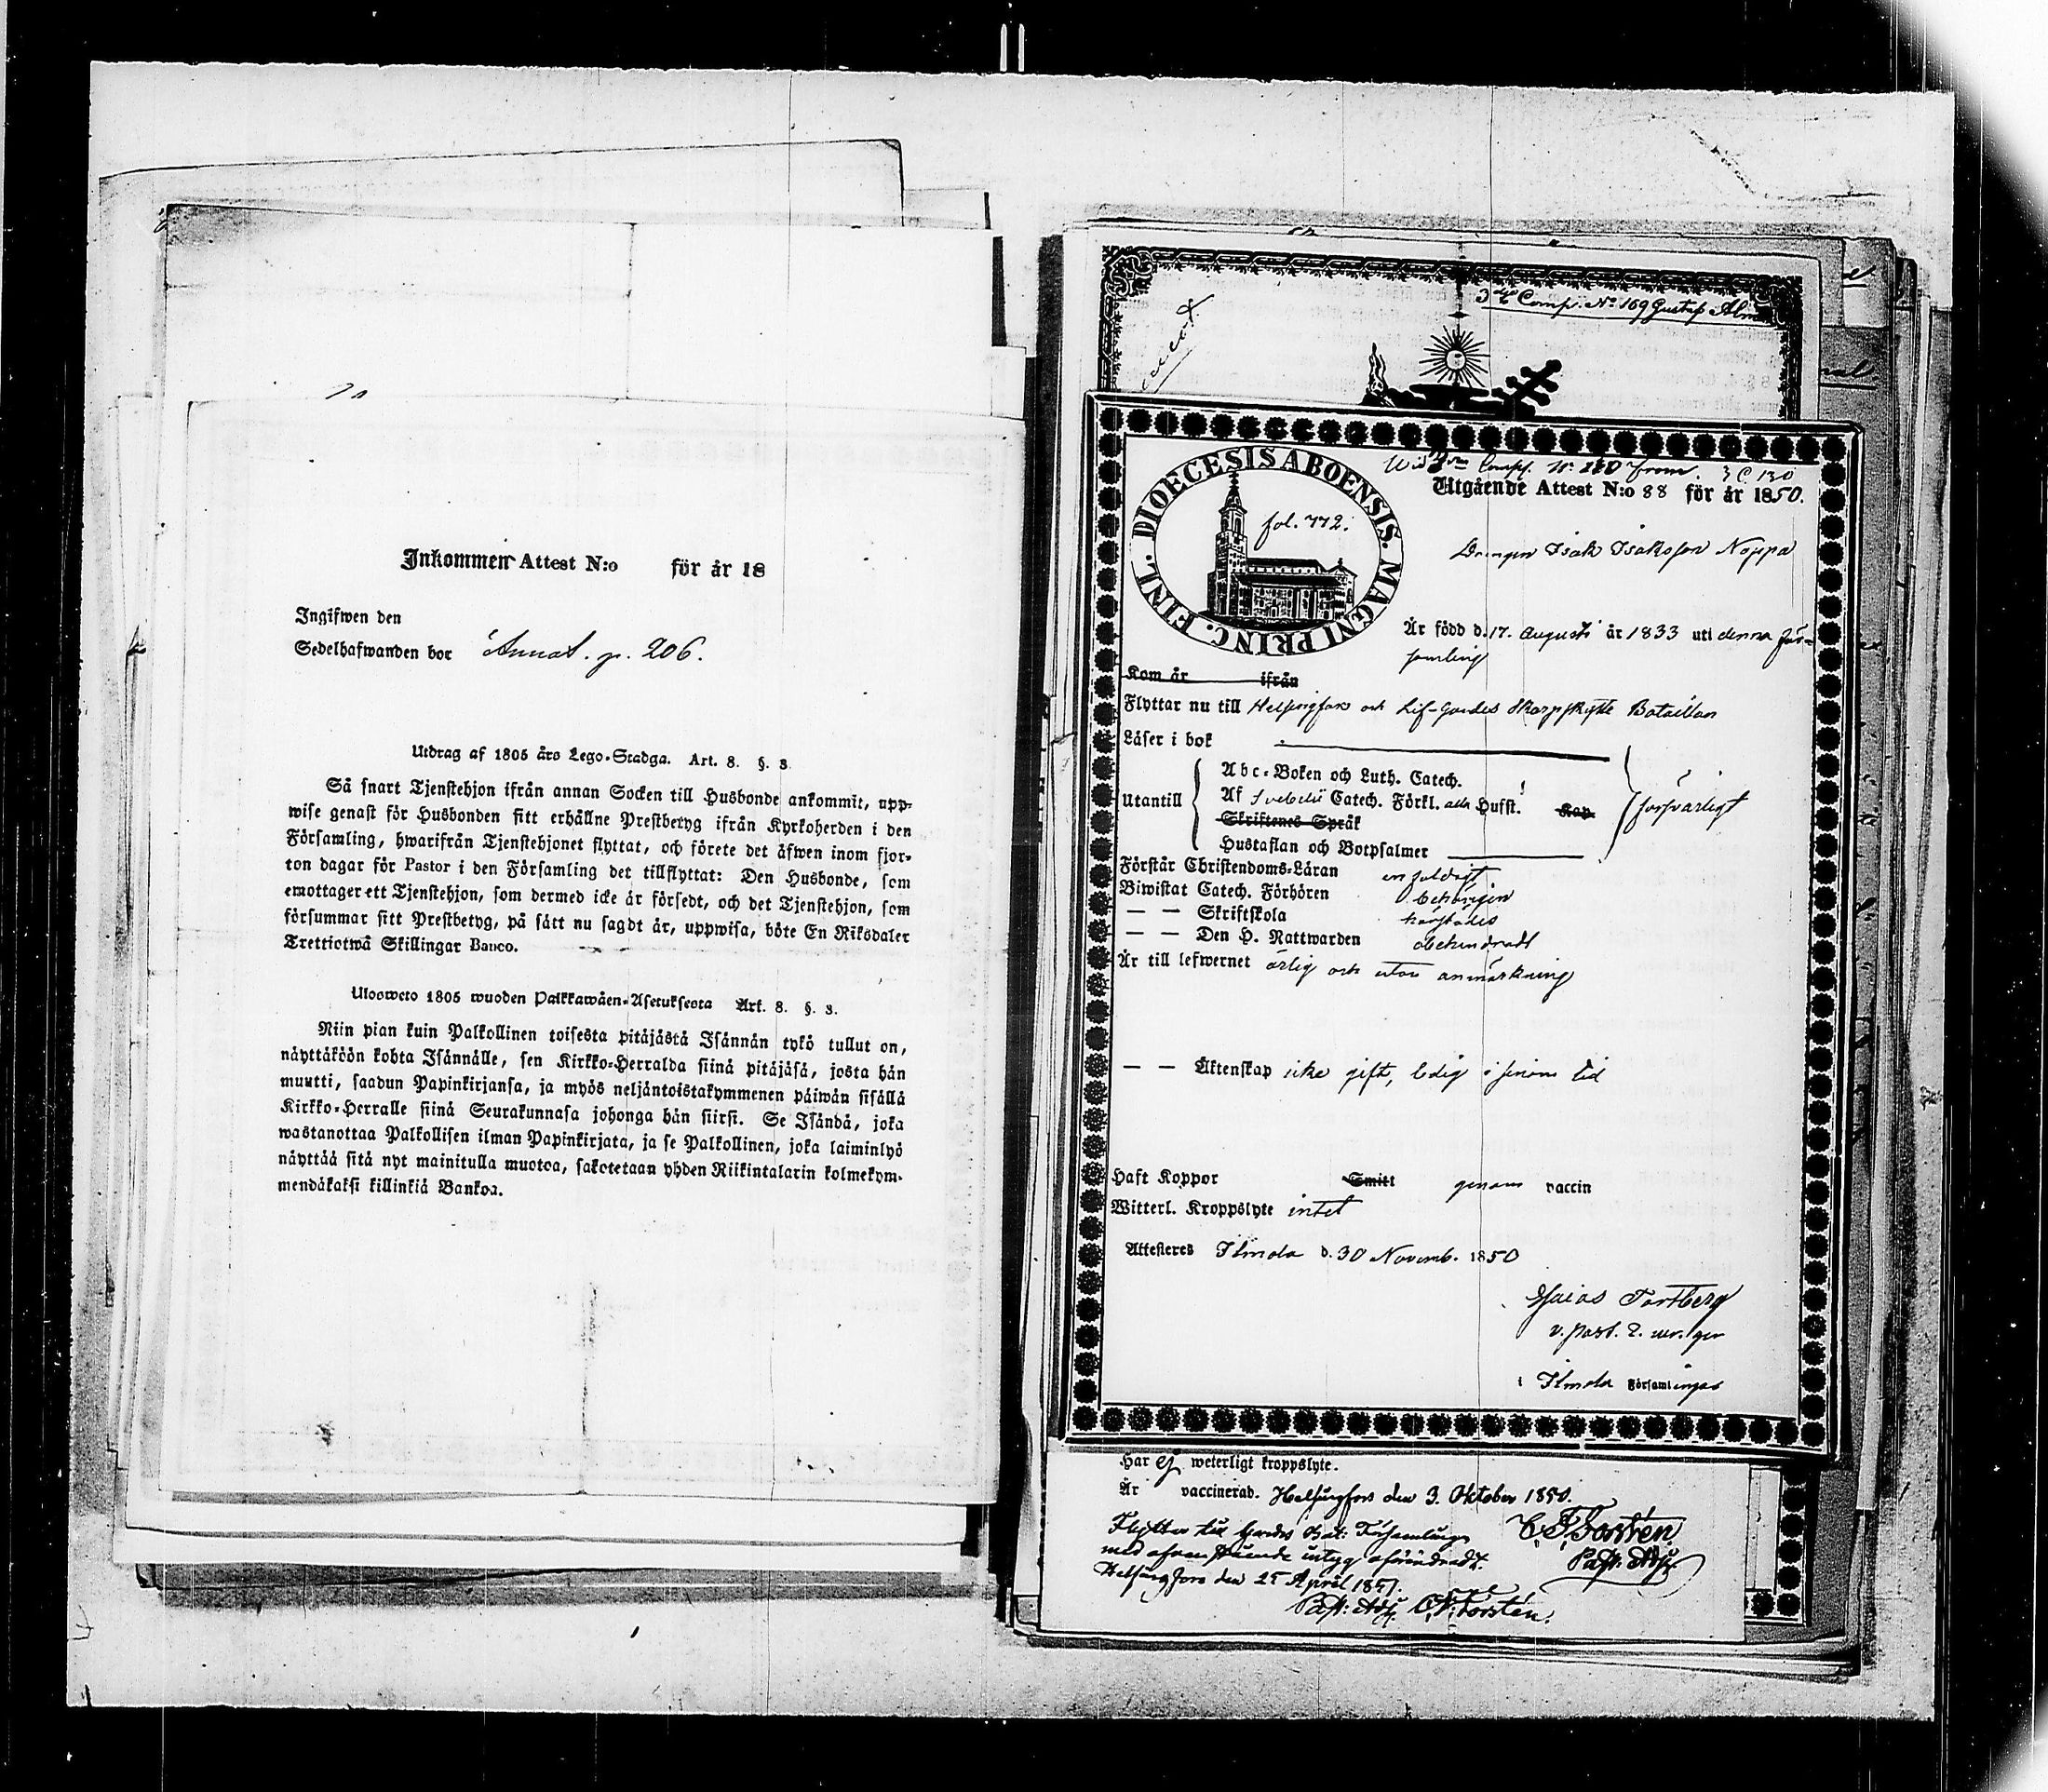 Inkommen Attest N:o för år 18
Ingifwen den
Sedelhafwanden bor Annat. p. 206.
Utdrag af 1805 års Lego-Stadga. Art. 8. §. 3.
Så snart Tjenstehjon ifrån annan Socken till Husbonde ankommit, upp-
wise genast för Husbonden sitt erhållne Prestbetyg ifrån Kyrkoherden i den
Församling, hwarifrån Tjenstehjonet flyttat, och förete det äfwen inom fjor-
ton dagar för Pastor i den Församling det tillflyttat: Den Husbonde, som
emottager ett Tjenstehjon, som dermed icke är försedt, och det Tjenstehjon, som
försummar sitt Prestbetyg, på sätt nu sagdt är, uppwisa, böte En Riksdaler
Trettiotwå Skillingar Banco.
Ulosweto 1805 wuoden Palkkawäen-Asetuksesta Art. 8. §. 3.
Niin pian kuin Palkollinen toisesta pitäjästä Isännän tykö tullut on,
näyttäköön kohta Isännälle, sen Kirkko-Herralda siinä pitäjäsä, josta hän
muutti, saadun Papinkirjansa, ja myös neljäntoistakymmenen päiwän sisällä
Kirkko-Herralle siinä Seurakunnasa johonga hän siirsi. Se Isändä, joka
wastanottaa Palkollisen ilman Papinkirjata, ja se Palkollinen, joka laiminlyö
näyttää sitä nyt mainitulla muotoa, sakotetaan yhden Riikintalarin kolmekym-
mendäkaksi killinkiä Bankoa.
3dje Comp. No 169 Gustaf Alm
3 C 130
DIOECESIS ABOENSIS. MAGNI PRINC. FINL.
fol. 772.
Utgående Attest N:o 88 för år 1850.
Drengen Isak Isaksson Noppa
Är född d. 17. Augusti år 1833 uti denna för-
samling
Kom år ifrån
Flyttar nu till Helsingfors och Lif-Gardes Skarpskytte Bataillon
Läser i bok
Utantill
Abc-Boken och Luth. Catech.
Af Svebelii Catech. Förkl. alla Hufst. Kap
Skriftenes Språk
Hustaflan och Botpsalmer
försvarligt
Förstår Christendoms-Läran enfaldigt
Biwistat Catech. Förhören behörigen
— — Skriftskola härstädes
— — Den H. Nattwarden obehindradt
Är till lefwernet ärlig och utan anmärkning
— — Äktenskap icke gift, ledig i sinom tid
Haft Koppor Smitt genom vaccin
Witterl. Kroppslyte intet
Attesteres Ilmola d. 30 Novemb. 1850
Esaias Fortberg
v. past.
i Ilmola Församlingar
Har ej weterligt kroppslyte.
Är vaccinerad. Helsingfors den 3. Oktober 1850.
C. F. Forstén
Past: Adj.
Flyttar till Gardes Bat: Församling
med ofvanstående intyg oförändradt.
Helsingfors den 25 April 1851.
Past: Adj. C. F. Forstén.